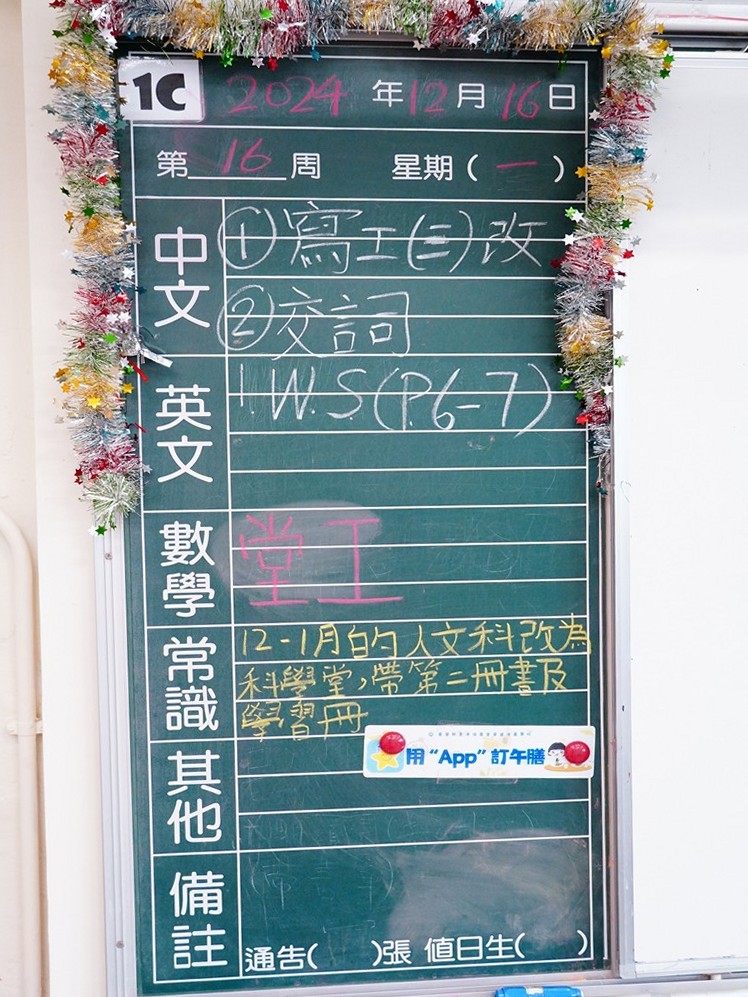 1C 2024 年 12 月 16 日
第 16 周 星期 ( 一 )
中文
① 寫工(三)改
② 交詞
英文
1. W.S.(P.6-7)
數學
堂工
常識
12-1月的人文科改為
科學堂,帶第二冊書及
學習冊
其他
用 “App” 訂午膳
備註
通告( )張 值日生( )